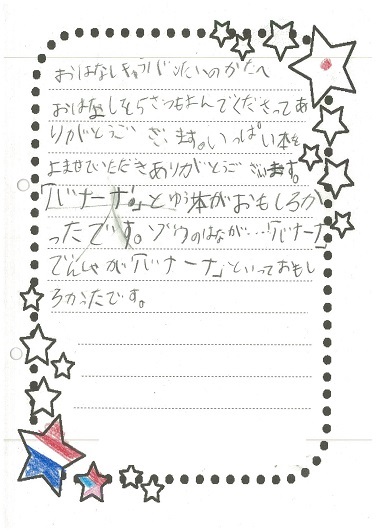 おはなしきゅうびんたいのかたへ
おはなしを5さつもよんでくださってあ
りがとうございます。いっぱい本を
よませていただきありがとうございます。
「バナーナ。」とゆう本がおもしろか
ったです。ゾウのはなが…「バナーナ」
でんしゃが「バナーナ」といっておもし
ろかったです。